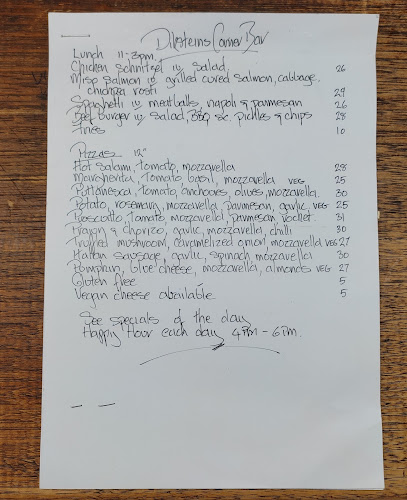 Dilsteins Corner Bar
Lunch 11-3pm.
Chicken Schnitzel w. Salad. 26
Miso Salmon w. grilled cured salmon, cabbage.
chickpea rosti 29
Spaghetti w meatballs, napoli & parmesan 26
Beef burger w. salad, BBQ sc. pickles & chips 28
Fries 10
Pizzas 12"
Hot Salami, Tomato, mozzarella 28
Margherita, Tomato, basil, mozzarella VEG 25
Puttanesca, Tomato, anchovies, olives, mozzarella 30
Potato, rosemary, mozzarella, parmesan, garlic VEG 25
Prosciutto, Tomato mozzarella, parmesan, rocket. 31
Prawn & Chorizo, garlic, mozzarella, chilli 30
Truffled mushroom, caramelized onion, mozzarella VEG 27
Italian sausage, garlic, spinach mozzarella 30
Pumpkin, blue cheese, mozzarella, almonds VEG 27
Gluten free 5
Vegan cheese available 5
See specials of the day
Happy Hour each day 4pm - 6pm.